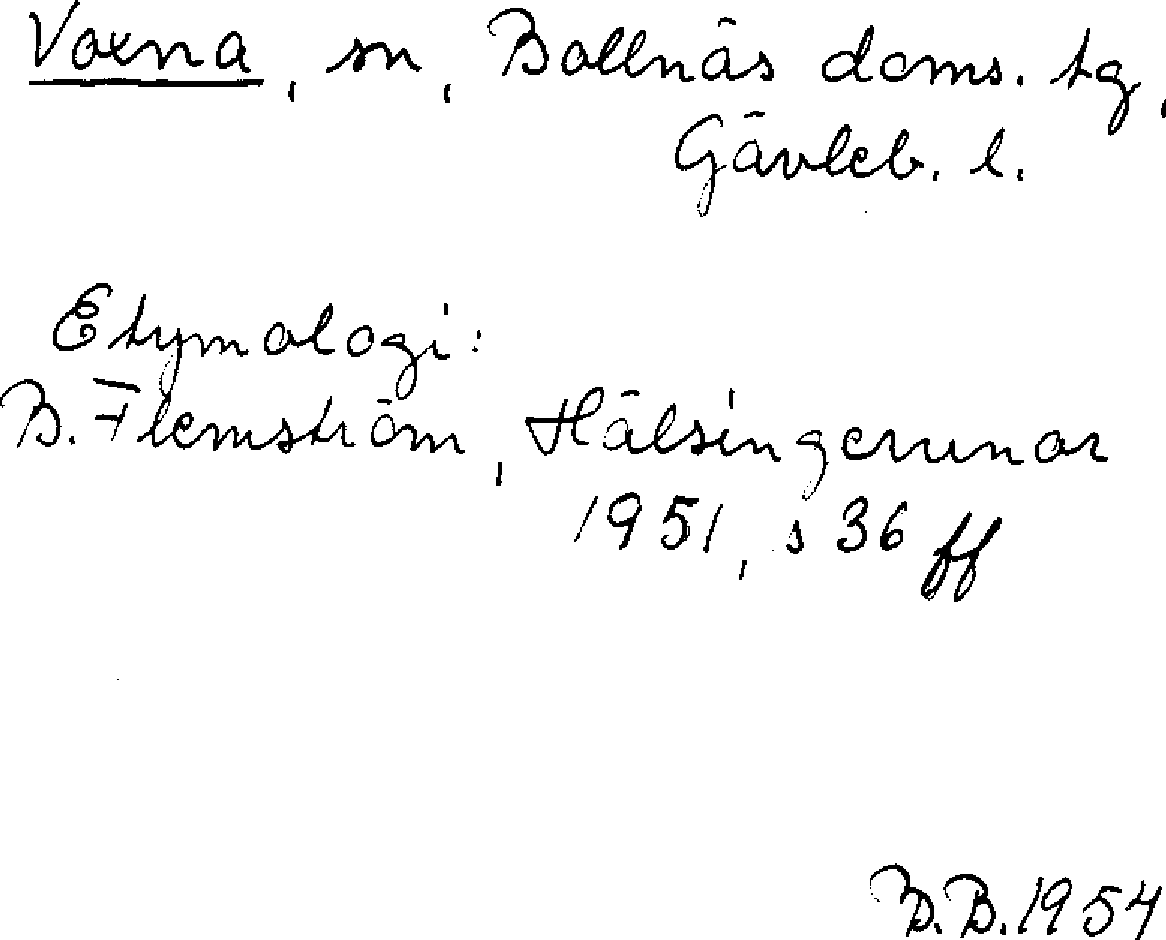 Voxna, sn, Bollnäs doms. tg,
Gävleb. l.
Etymologi:
B. Flemström, Hälsingerunor
1951, s 36 ff
B.B. 1954